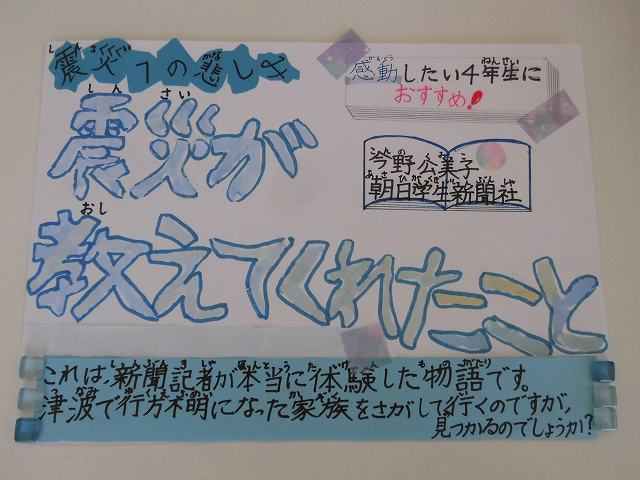 震災つの悲しみ
感動したい4年生に
おすすめ!
震災が
教えてくれたこと
今野公美子
朝日学生新聞社
これは、新聞記者が本当に体験した物語です。
津波で行方不明になった家族をさがして行くのですが、
見つかるのでしょうか?